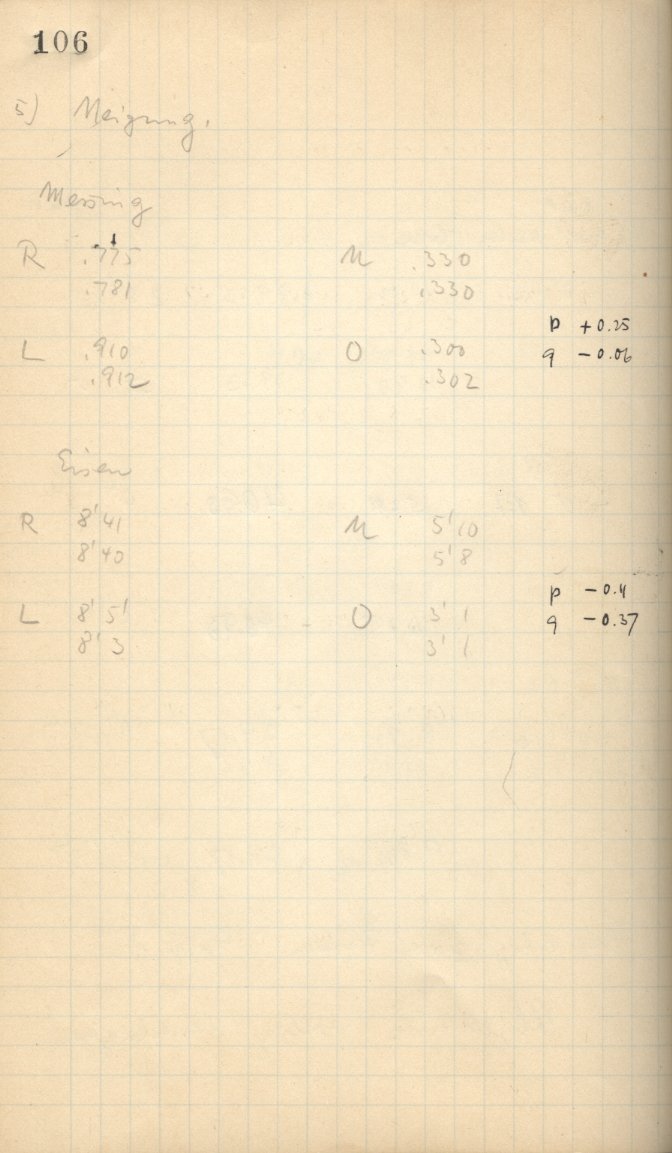 106
5) Neigung.
Messing
R .775 U .330
.781 .330
p +0.25
L .910 O .300 q -0.06
.912 .302
Eisen
R 8'41 U 5'10
8'40 5'8
p -0.4
L 8'5' O 3'1 q -0.37
8'3 3'1